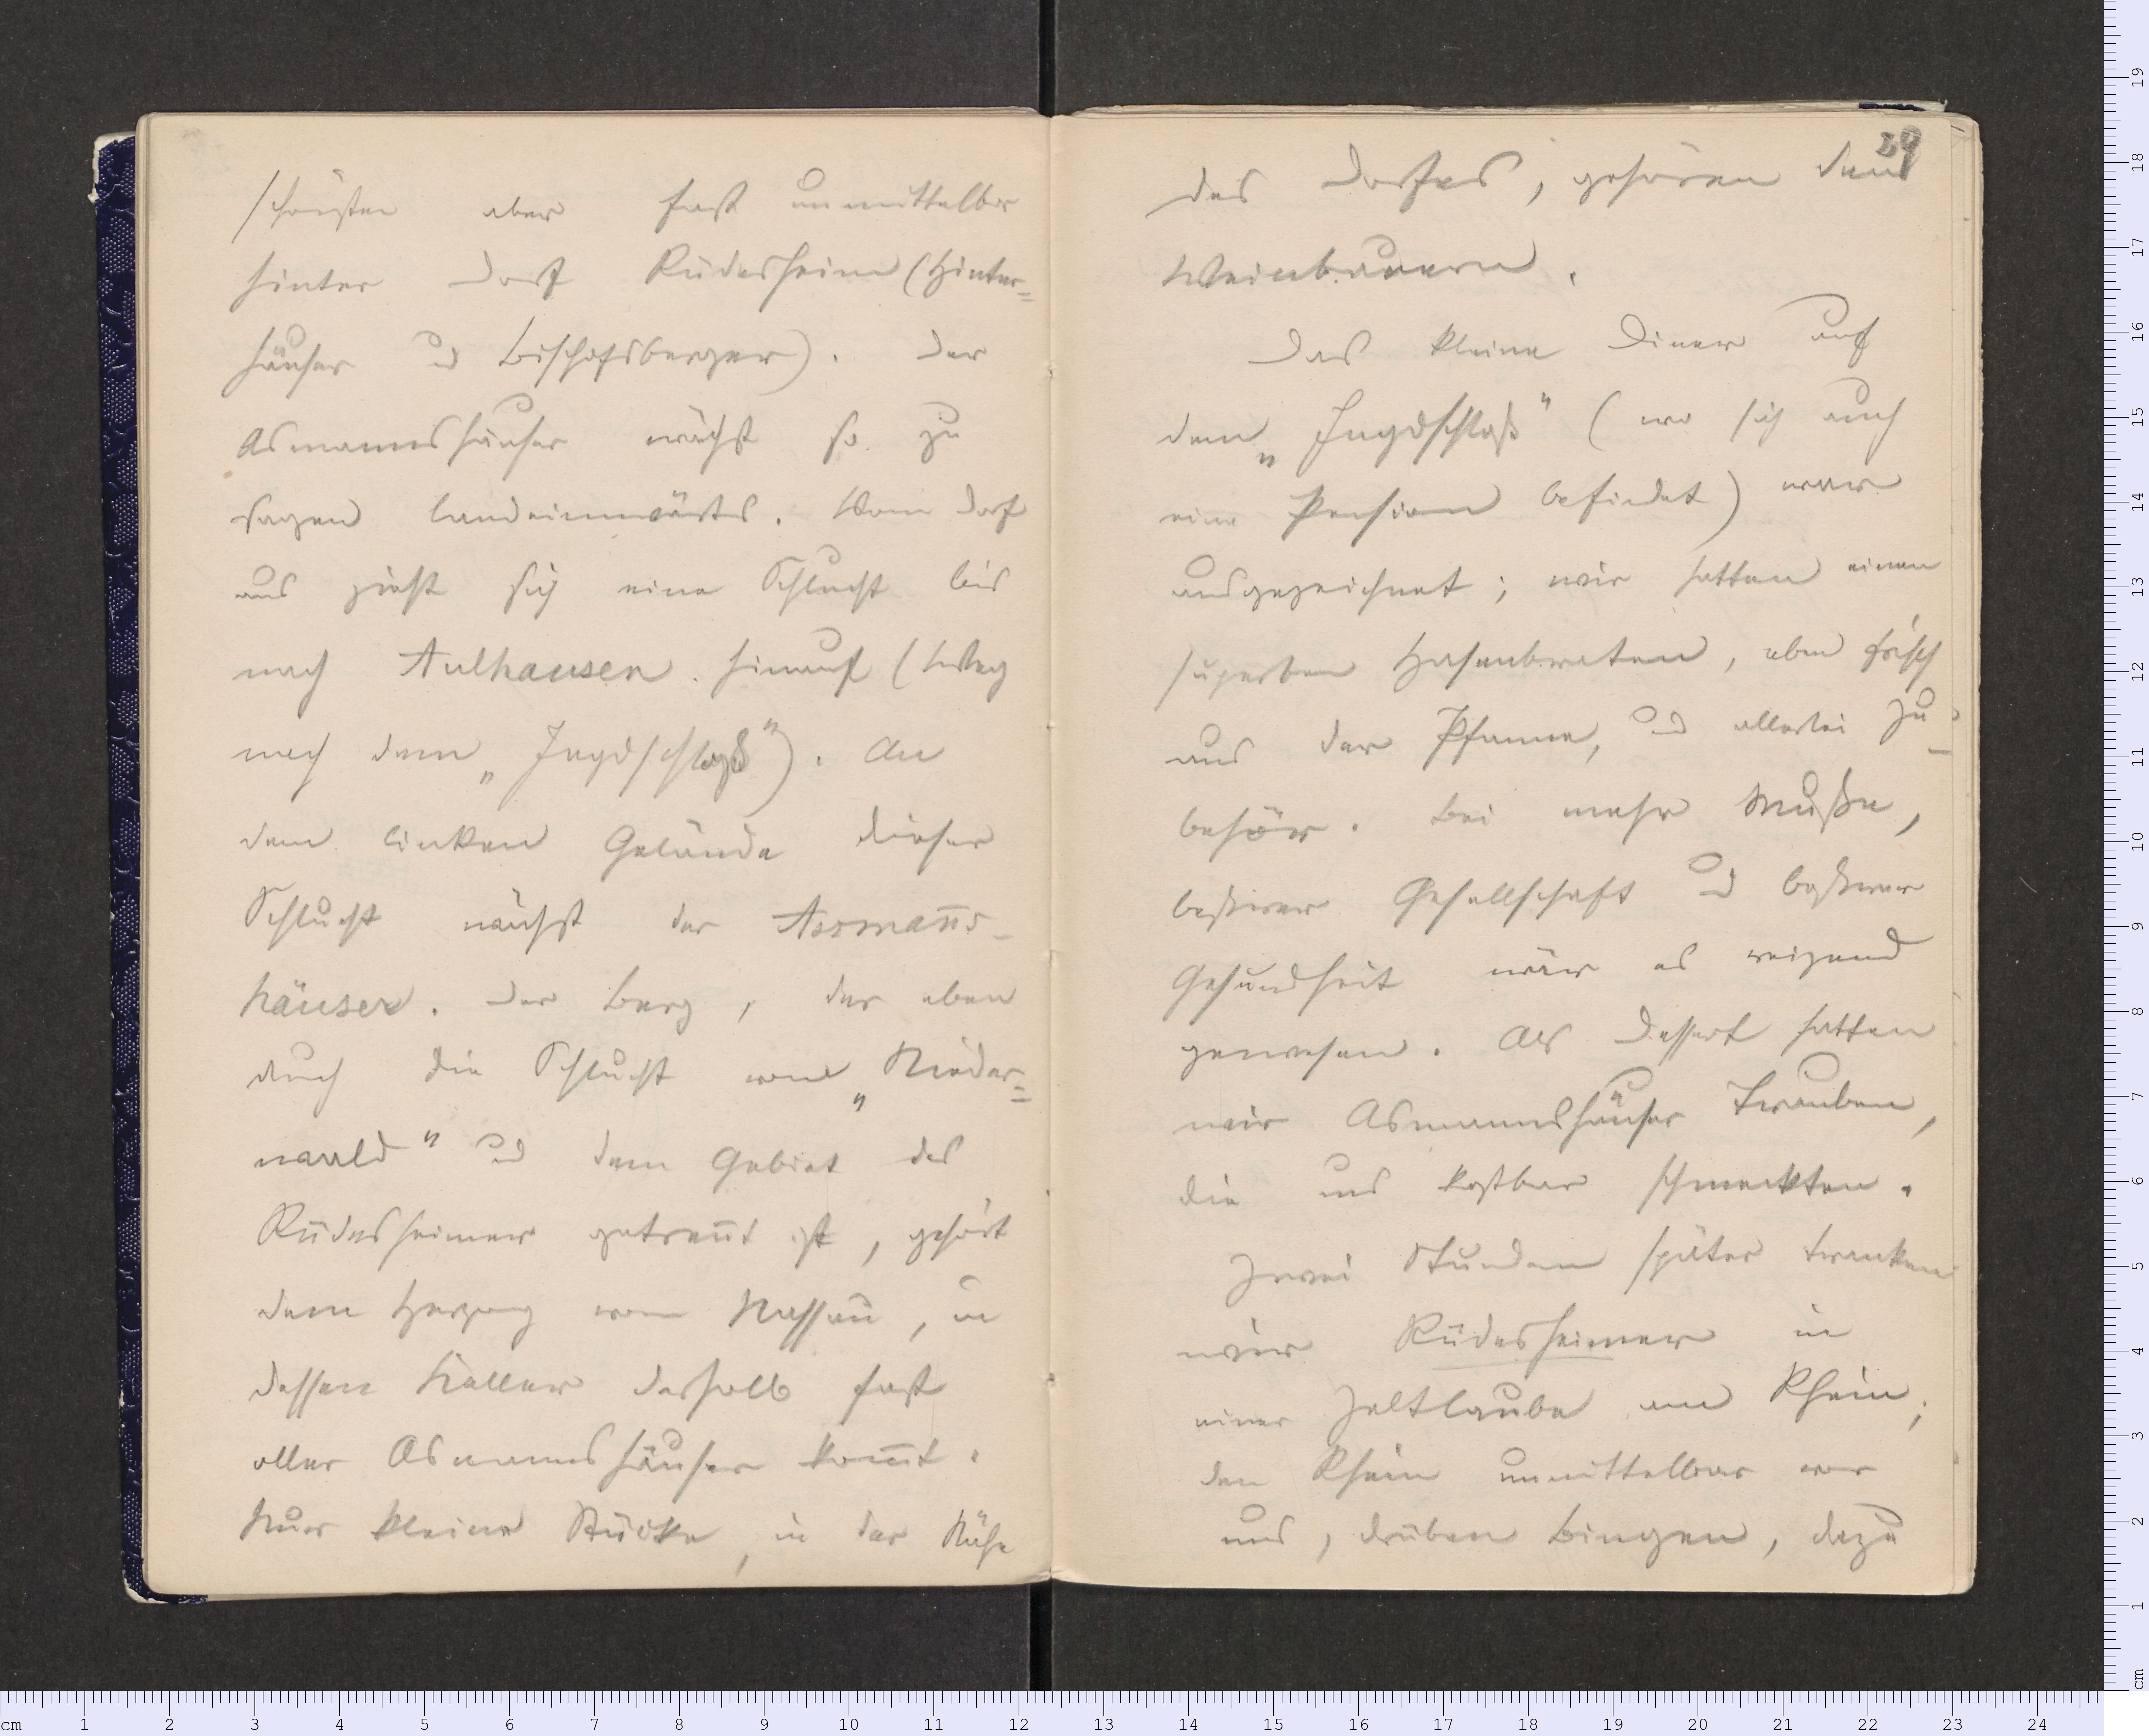 schönsten aber fast unmittelbr
hinter Dorf Rüdesheim (Hinter=
häuser und Bischofsberger). Der
Asmannshäuser wächst so zu
sagen landeinwärts. Vom Dorf
aus zieht sich eine Schlucht bis
nach Aulhausen hinauf (Weg
nach dem „Jagdschloß"). An
dem linken Gelände dieser
Schlucht wächst der Assman̅s-
häuser. Der Berg, der eben
durch die Schlucht vom „Nieder=
wald" und dem Gebiet des
Rüdesheimer getren̅t ist, gehört
dem Herzog von Nassau, in
dessen Keller deshalb fast
aller Asmannshäuser kom̅t.
Nur kleine Stücke, in der Nähe
29
des Dorfes, gehören den
Weinbauern.
Das kleine Diner auf
dem „Jagdschloß" (wo sich auch
eine Pension befindet) war
ausgezeichnet; wir hatten einen
superben Hasenbraten, eben frisch
aus der Pfanne, und allerlei Zu-
behör. Bei mehr Muße,
besserer Gesellschaft und besserer
Gesundheit wär es reizend
gewesen. Als Dessert hatten
wir Asmannshäuser Trauben,
die uns kostbar schmeckten.
Zwei Stunden später tranken
wir Rüdesheimer in
einer Zeltlaube am Rhein;
den Rhein unmittelbar vor
uns, drüben Bingen, dazu